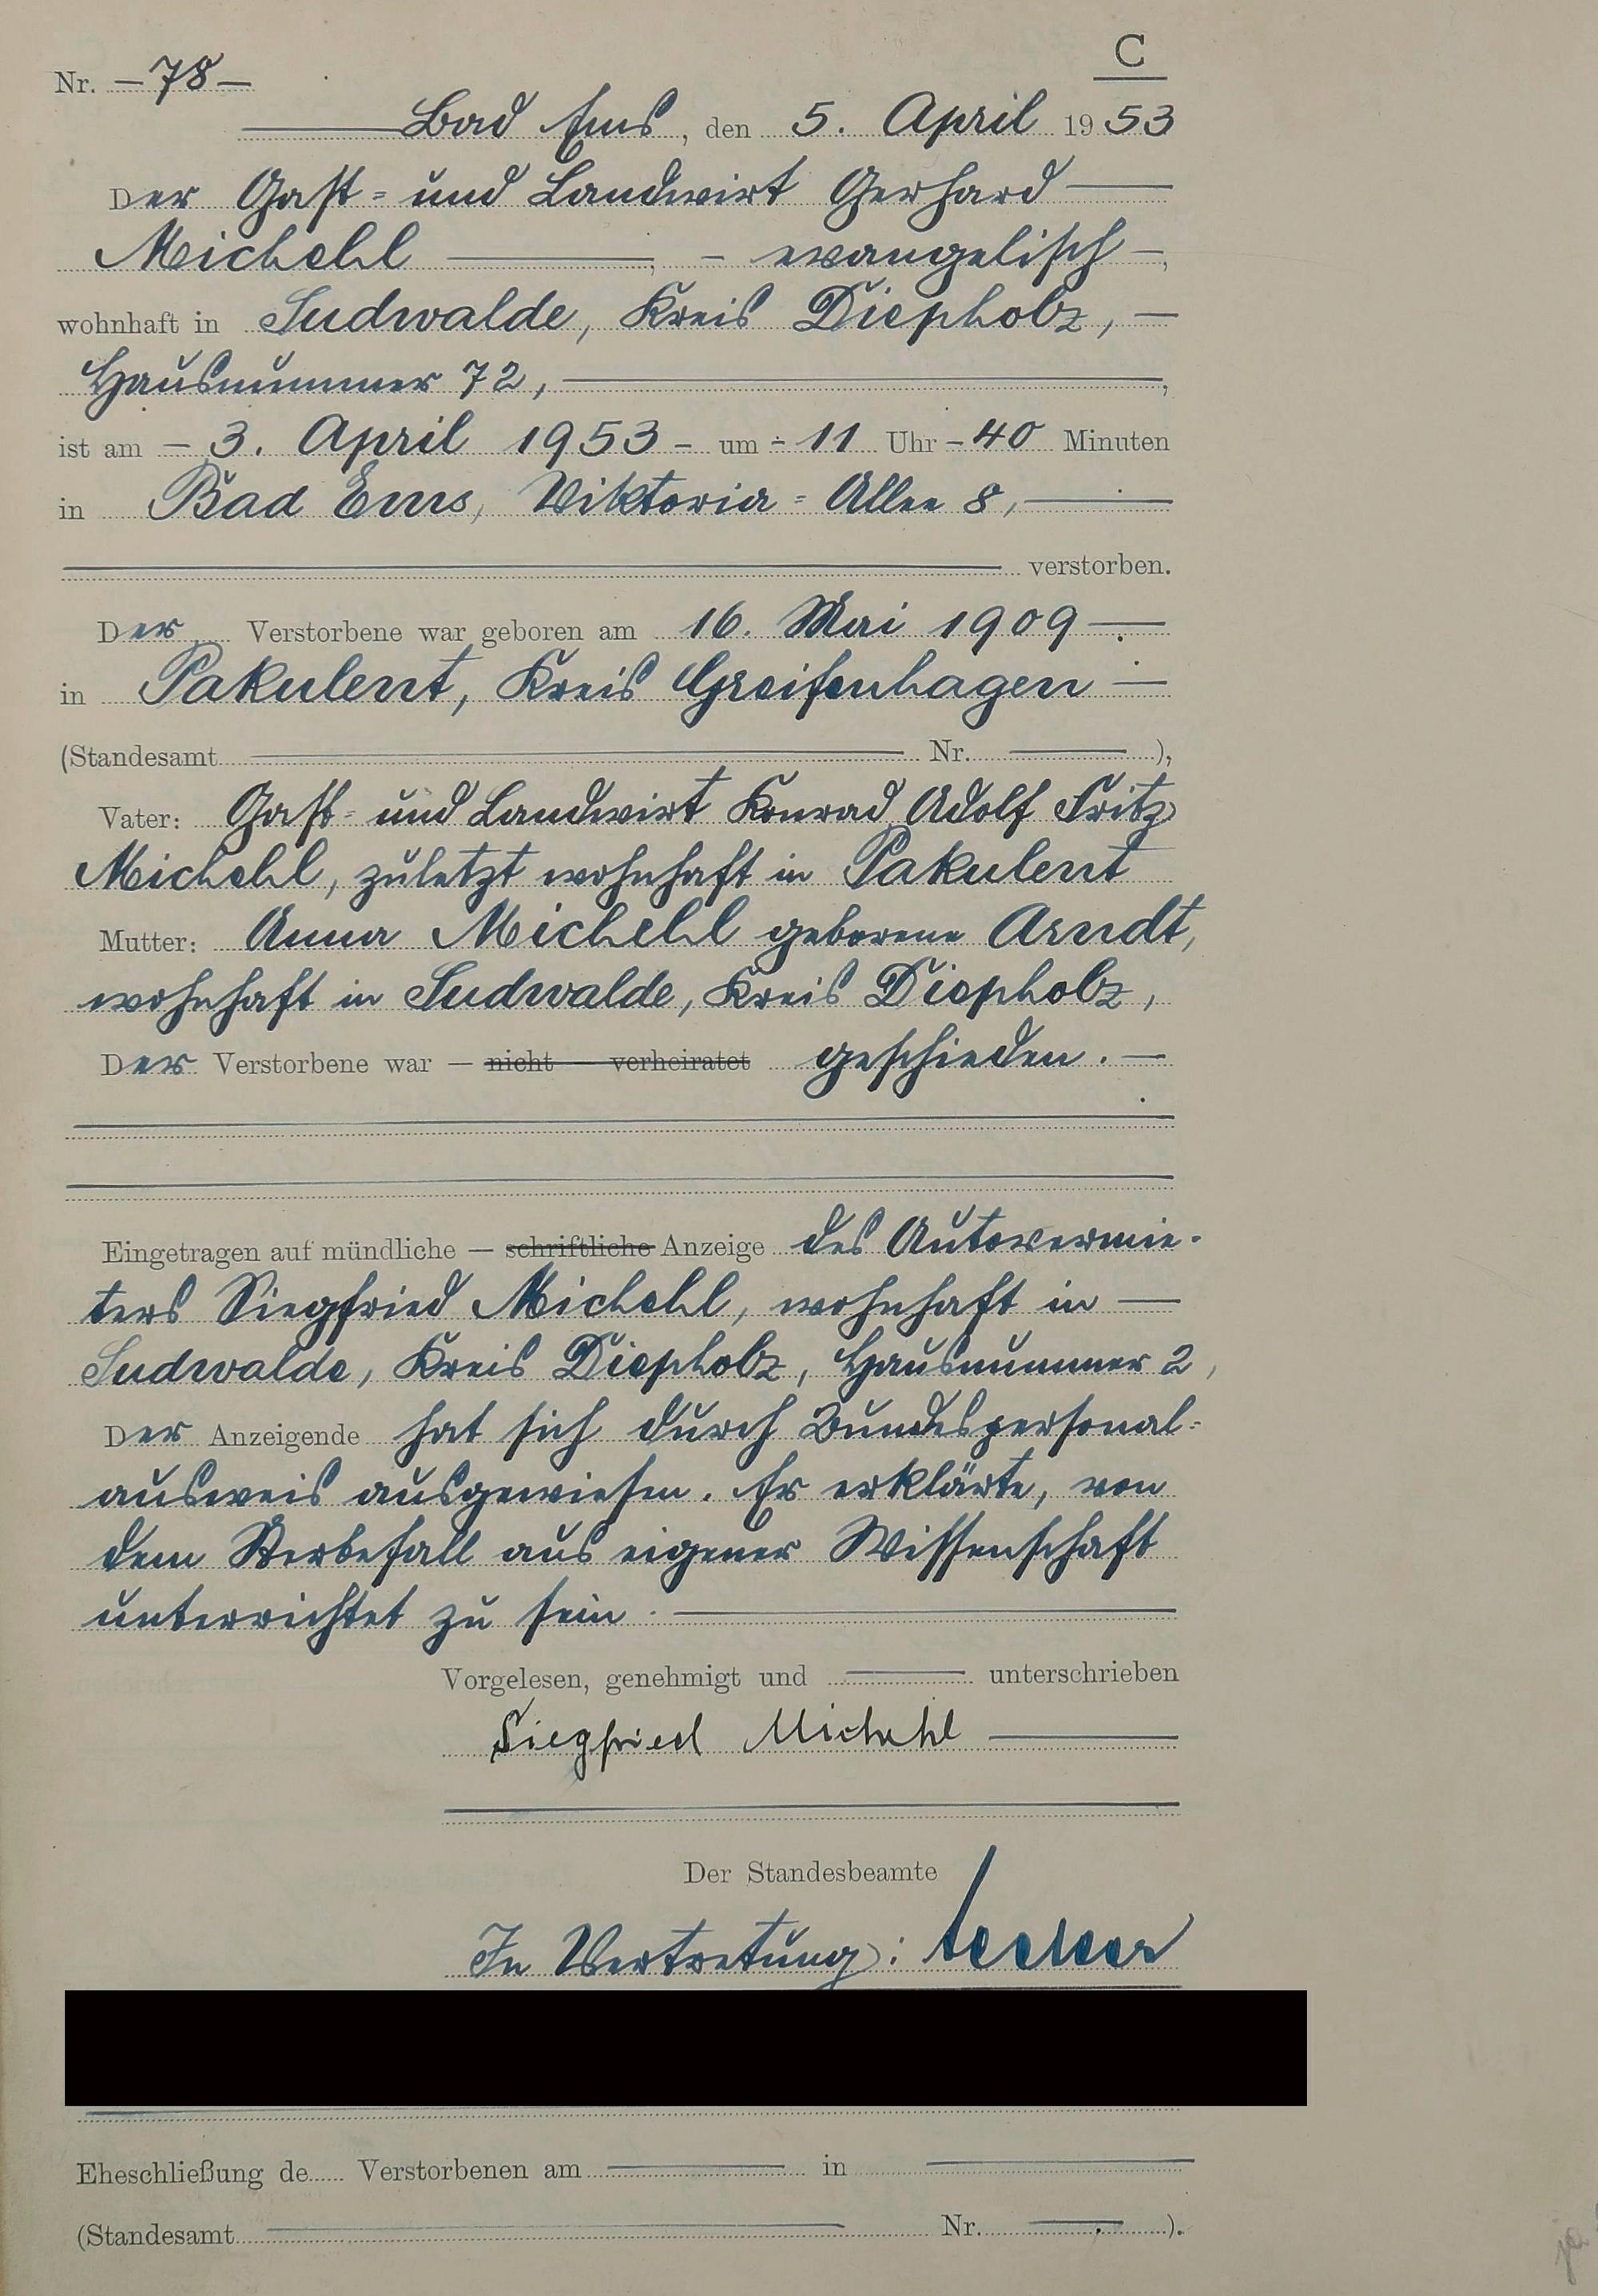 C
Nr. – 78 –
Bad Ems, den 5. April 1953
Der Gast- und Landwirt Gerhard
Michehl, – evangelisch –,
wohnhaft in Sudwalde, Kreis Diepholz, –
Hausnummer 72,
ist am – 3. April 1953 – um – 11 Uhr – 40 Minuten
in Bad Ems, Viktoria-Allee 8,
verstorben.
Der Verstorbene war geboren am 16. Mai 1909 –
in Pakulent, Kreis Greifenhagen –
(Standesamt Nr. ),
Vater: Gast- und Landwirt Konrad Adolf Fritz
Michehl, zuletzt wohnhaft in Pakulent
Mutter: Anna Michehl geborene Arndt,
wohnhaft in Sudwalde, Kreis Diepholz,
Der Verstorbene war — nicht — verheiratet geschieden. –
Eingetragen auf mündliche — schriftliche Anzeige des Autovermie-
ters Siegfried Michehl, wohnhaft in –
Sudwalde, Kreis Diepholz, Hausnummer 2,
Der Anzeigende hat sich durch Bundespersonal-
ausweis ausgewiesen. Er erklärte, von
dem Sterbefall aus eigener Wissenschaft
unterrichtet zu sein.
Vorgelesen, genehmigt und unterschrieben
Siegfried Michehl
Der Standesbeamte
In Vertretung:
Eheschließung de Verstorbenen am in
(Standesamt Nr. ).